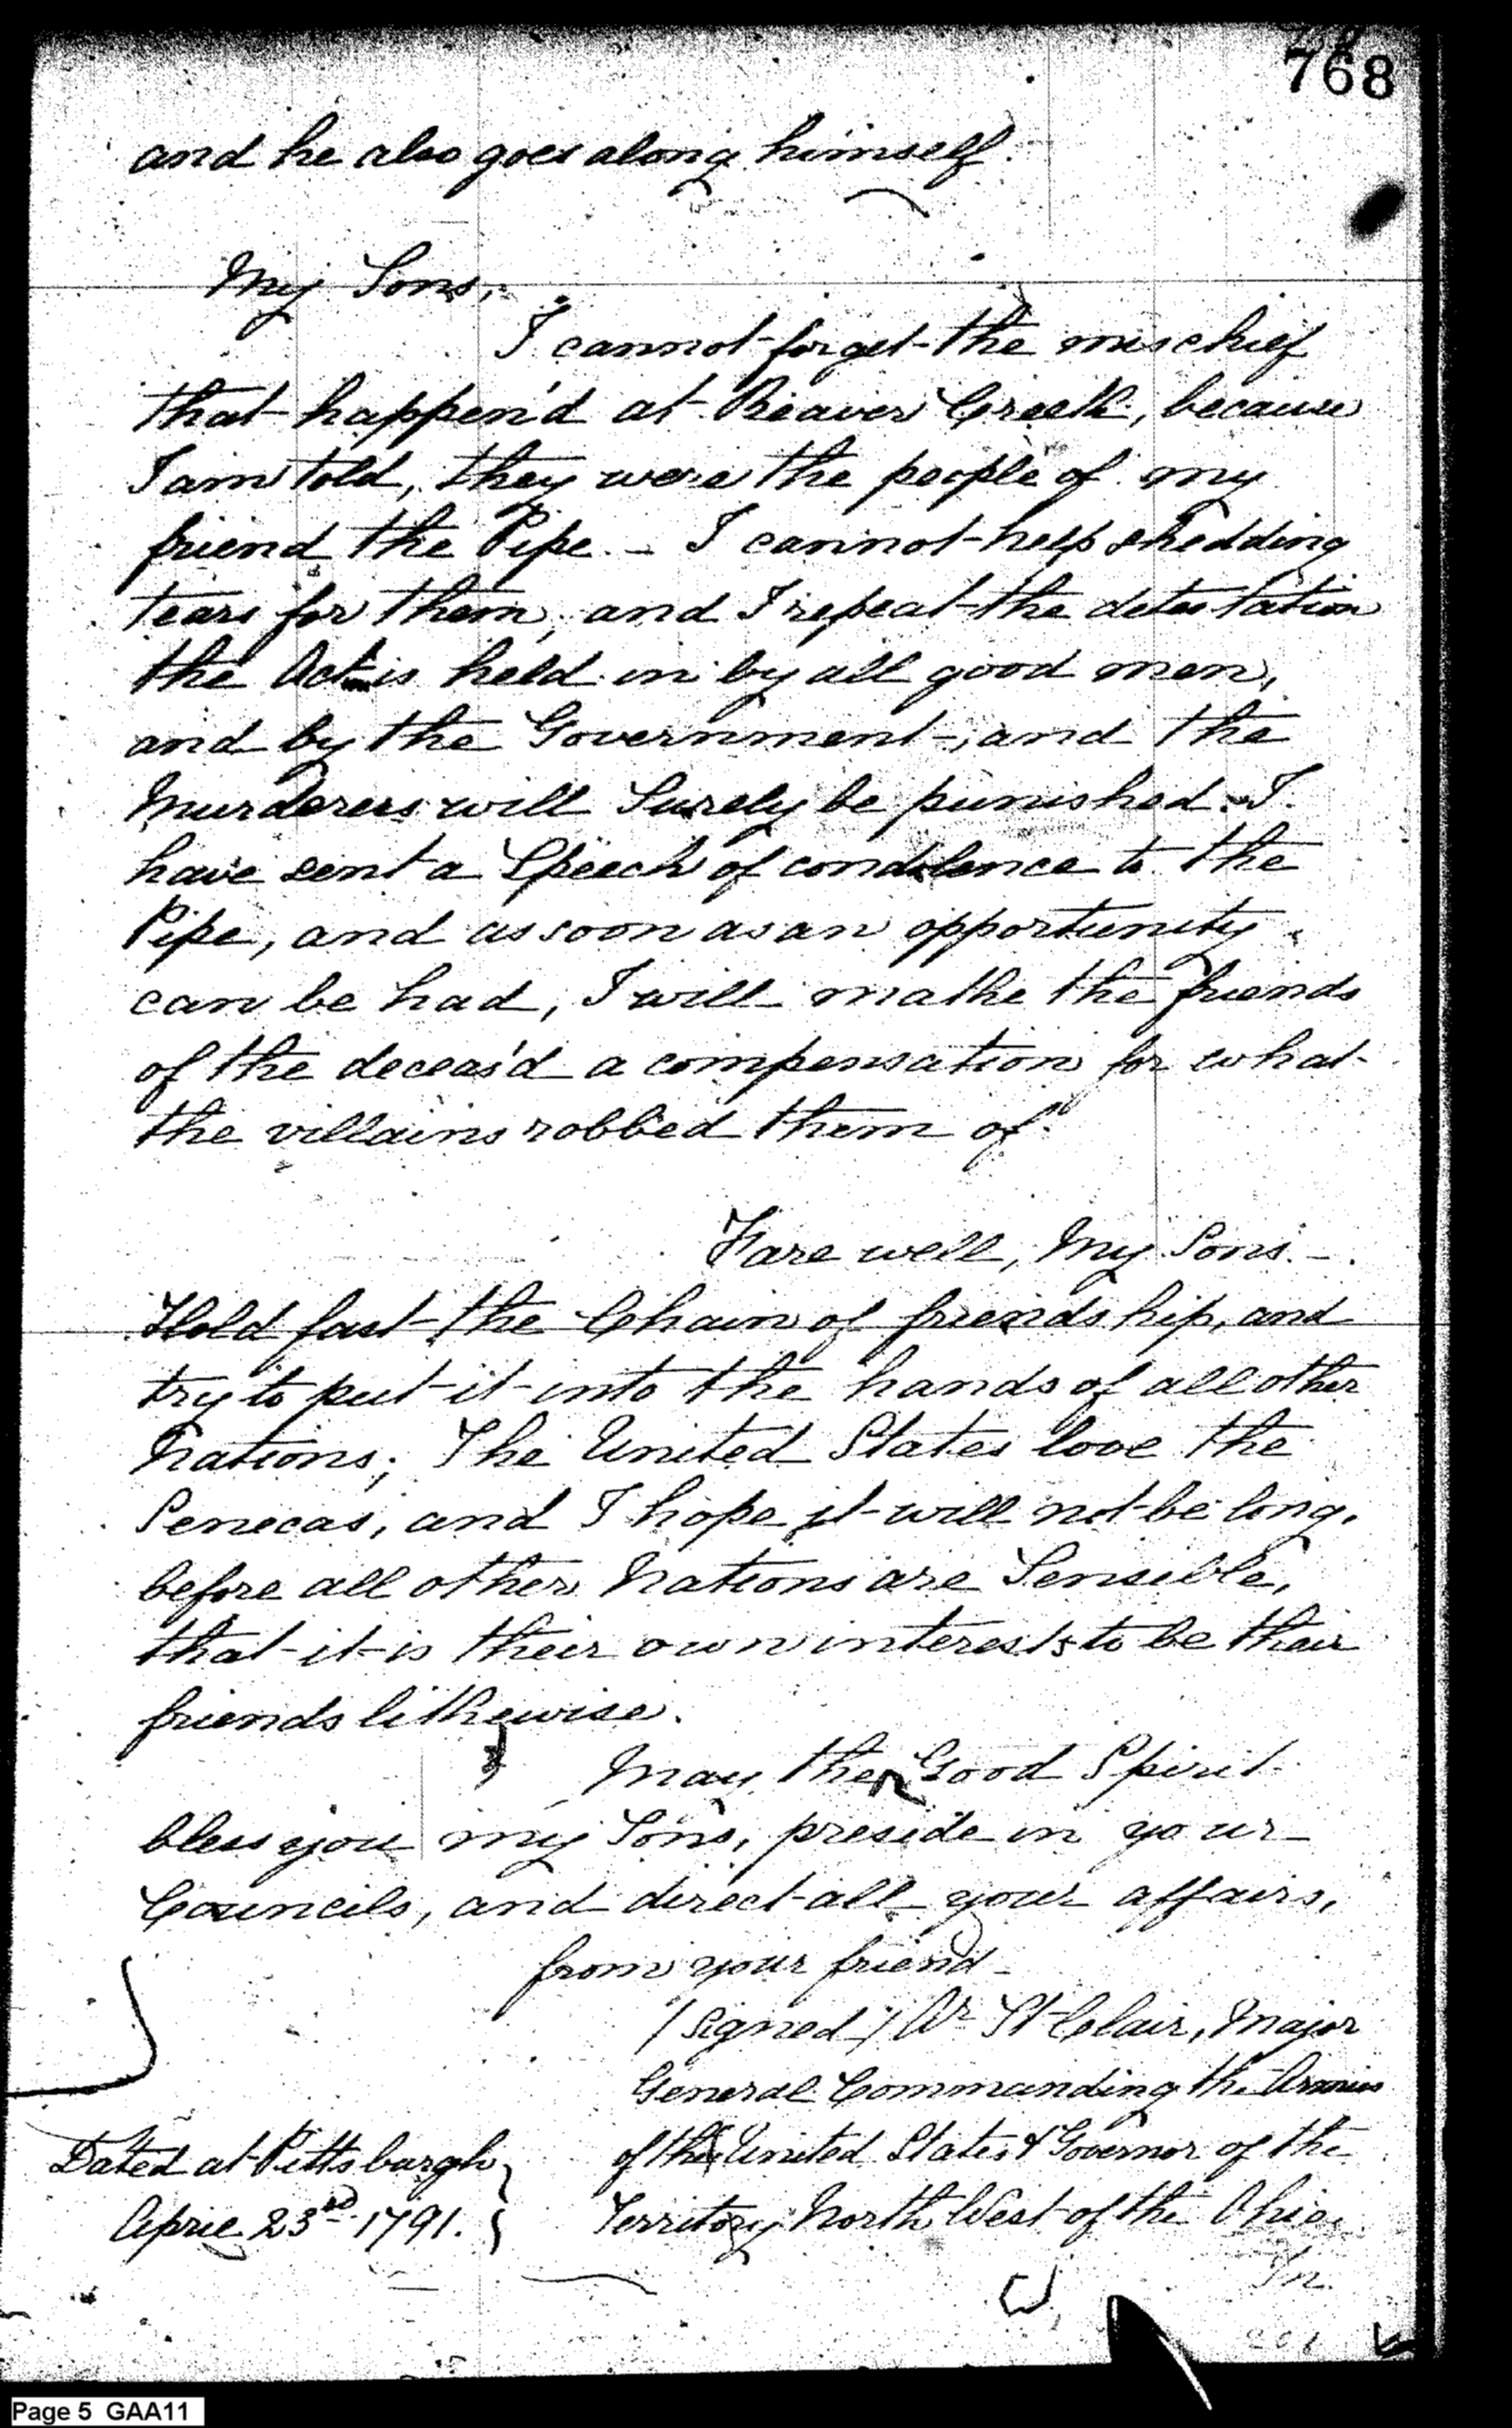 768
and he also goes along himself.
My Sons,
I cannot forget the mischief
that happen'd at Beaver Creek, because
I am told, they were the people of my
friend the Pipe. – I cannot help shedding
tears for them, and I repeat the detestation
the Act is held in by all good men,
and by the Government, and the
Murderers will Surely be punished. I
have sent a Speech of condolence to the
Pipe, and as soon as an opportunity
can be had, I will make the friends
of the deceas'd a compensation for what
the villains robbed them of.
Fare well, My Sons. –
Hold fast the Chain of friendship, and
try to put it into the hands of all other
Nations; The United States love the
Senecas, and I hope it will not be long,
before all other Nations are Sensible,
that it is their own interests to be their
friends likewise.
May the Good Spirit
bless you my Sons, preside in your
Councils, and direct all your affairs,
from your friend
/signed/ Ar St Clair, Major
General Commanding the Armies
of the United States & Governor of the
Territory North West of the Ohio.
Dated at Pittsburgh
April 23rd 1791.
In
201
Page 5 GAA11